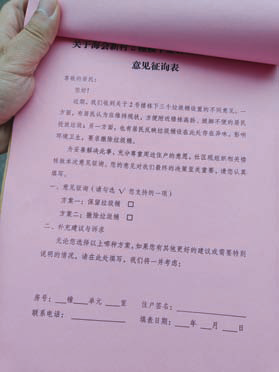 意见征询表
尊敬的居民：
您好！
近期，我们收到关于2号楼栋下三个垃圾桶设置的不同意见。一
方面，有居民认为应维持现状，方便附近楼栋高龄、腿脚不便的居民
投放垃圾；另一方面，也有居民反映垃圾桶设在此处存在异味，影响
环境卫生，要求撤除垃圾桶。
为妥善解决此事，充分尊重周边住户的意愿，社区现组织相关楼
栋做本次意见征询。您的意见对我们最终的决策至关重要，请您认真
填写。
一、意见征询（请勾选 √ 您支持的一项）
方案一：保留垃圾桶 □
方案二：撤除垃圾桶 □
二、补充建议与诉求
无论您选择以上哪种方案，如果您有其他更好的建议或需要特别
说明的情况，请在此处填写，我们将一并考虑：
房号：__幢__单元__室 住户签名：
联系电话： 填表日期：__年__月__日